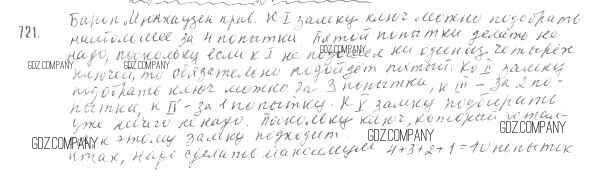 721. Барон Мюнхаузен прав. К I замку ключ можно подобрать
наибольшее за 4 попытки. Пятой попытки делать не
надо, поскольку если к I не подошел ни один из четырёх
ключей, то обязательно подойдет пятый. Ко II замку
подобрать ключ можно за 3 попытки, к III – за 2 по-
пытки, к IV – за 1 попытку. К V замку подбирать
уже ничего не надо. Поскольку ключ, который остал-
к этому замку подходит
Итак, надо сделать максимум 4+3+2+1=10 попыток
GDZ.COMPANY
GDZ.COMPANY
GDZ.COMPANY
GDZ.COMPANY
GDZ.COMPANY
GDZ.COMPANY